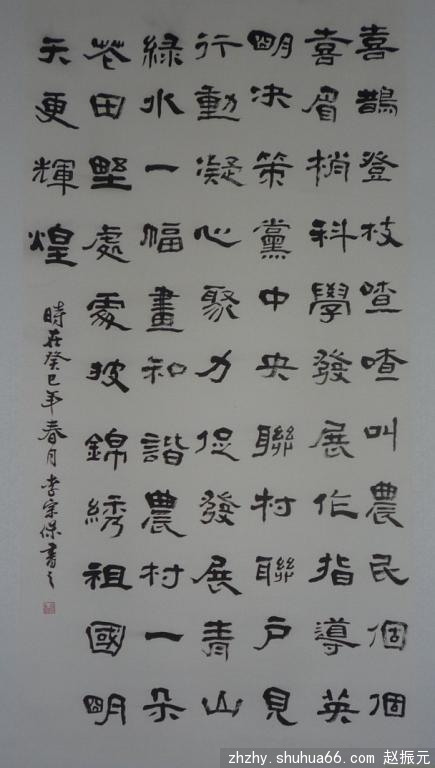 喜鵲登枝喳喳叫農民個個
喜眉梢科學發展作指導英
明決策黨中央聯村聯戶見
行動凝心聚力促發展青山
綠水一幅畫和諧農村一朵
花田野處處披錦綉祖國明
天更輝煌
時在癸巳年春月李宗保書之
zhzhy.shuhua66.com 赵振元